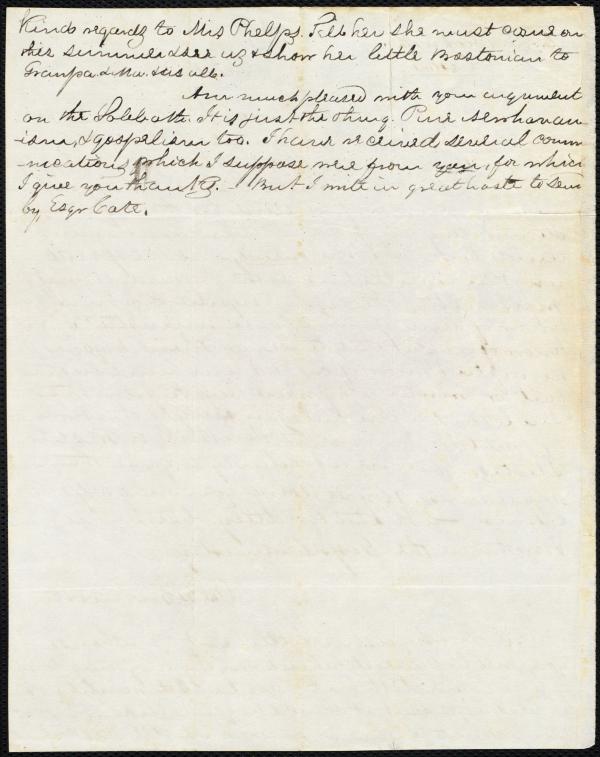 Kind regards to Mrs Phelps. Tell her she must come on
this summer & see us & show her little Bostonian to
Granpa & Ma. & us all.
Am much pleased with your argument
on the Sabbath. It is just the thing. Pure Newhavan-
ism, & gospelism too. I have received several comm-
nications, which I suppose were from you, for which
I give you thanks. – But I write in great haste to send
by Esqr Cate.